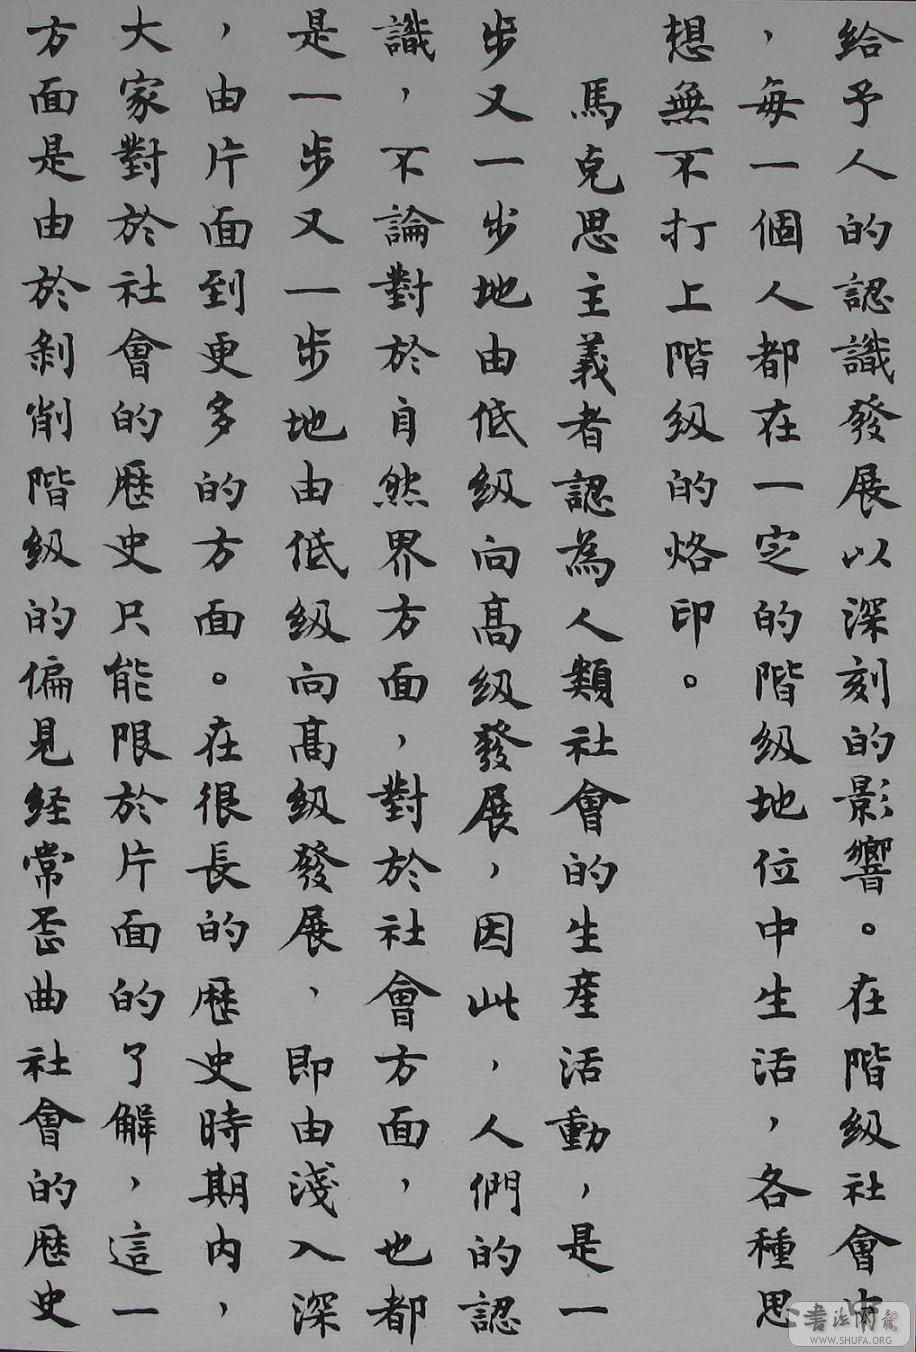 給予人的認識發展以深刻的影響。在階級社會中
，每一個人都在一定的階級地位中生活，各種思
想無不打上階級的烙印。
馬克思主義者認為人類社會的生產活動，是一
步又一步地由低級向高級發展，因此，人們的認
識，不論對於自然界方面，對於社會方面，也都
是一步又一步地由低級向高級發展，即由淺入深
，由片面到更多的方面。在很長的歷史時期內，
大家對於社會的歷史只能限於片面的了解，這一
方面是由於剝削階級的偏見經常歪曲社會的歷史
書法閣
WWW.SHUFA.ORG